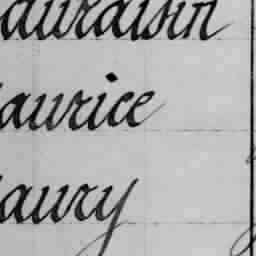 auraisin
aurice
aury